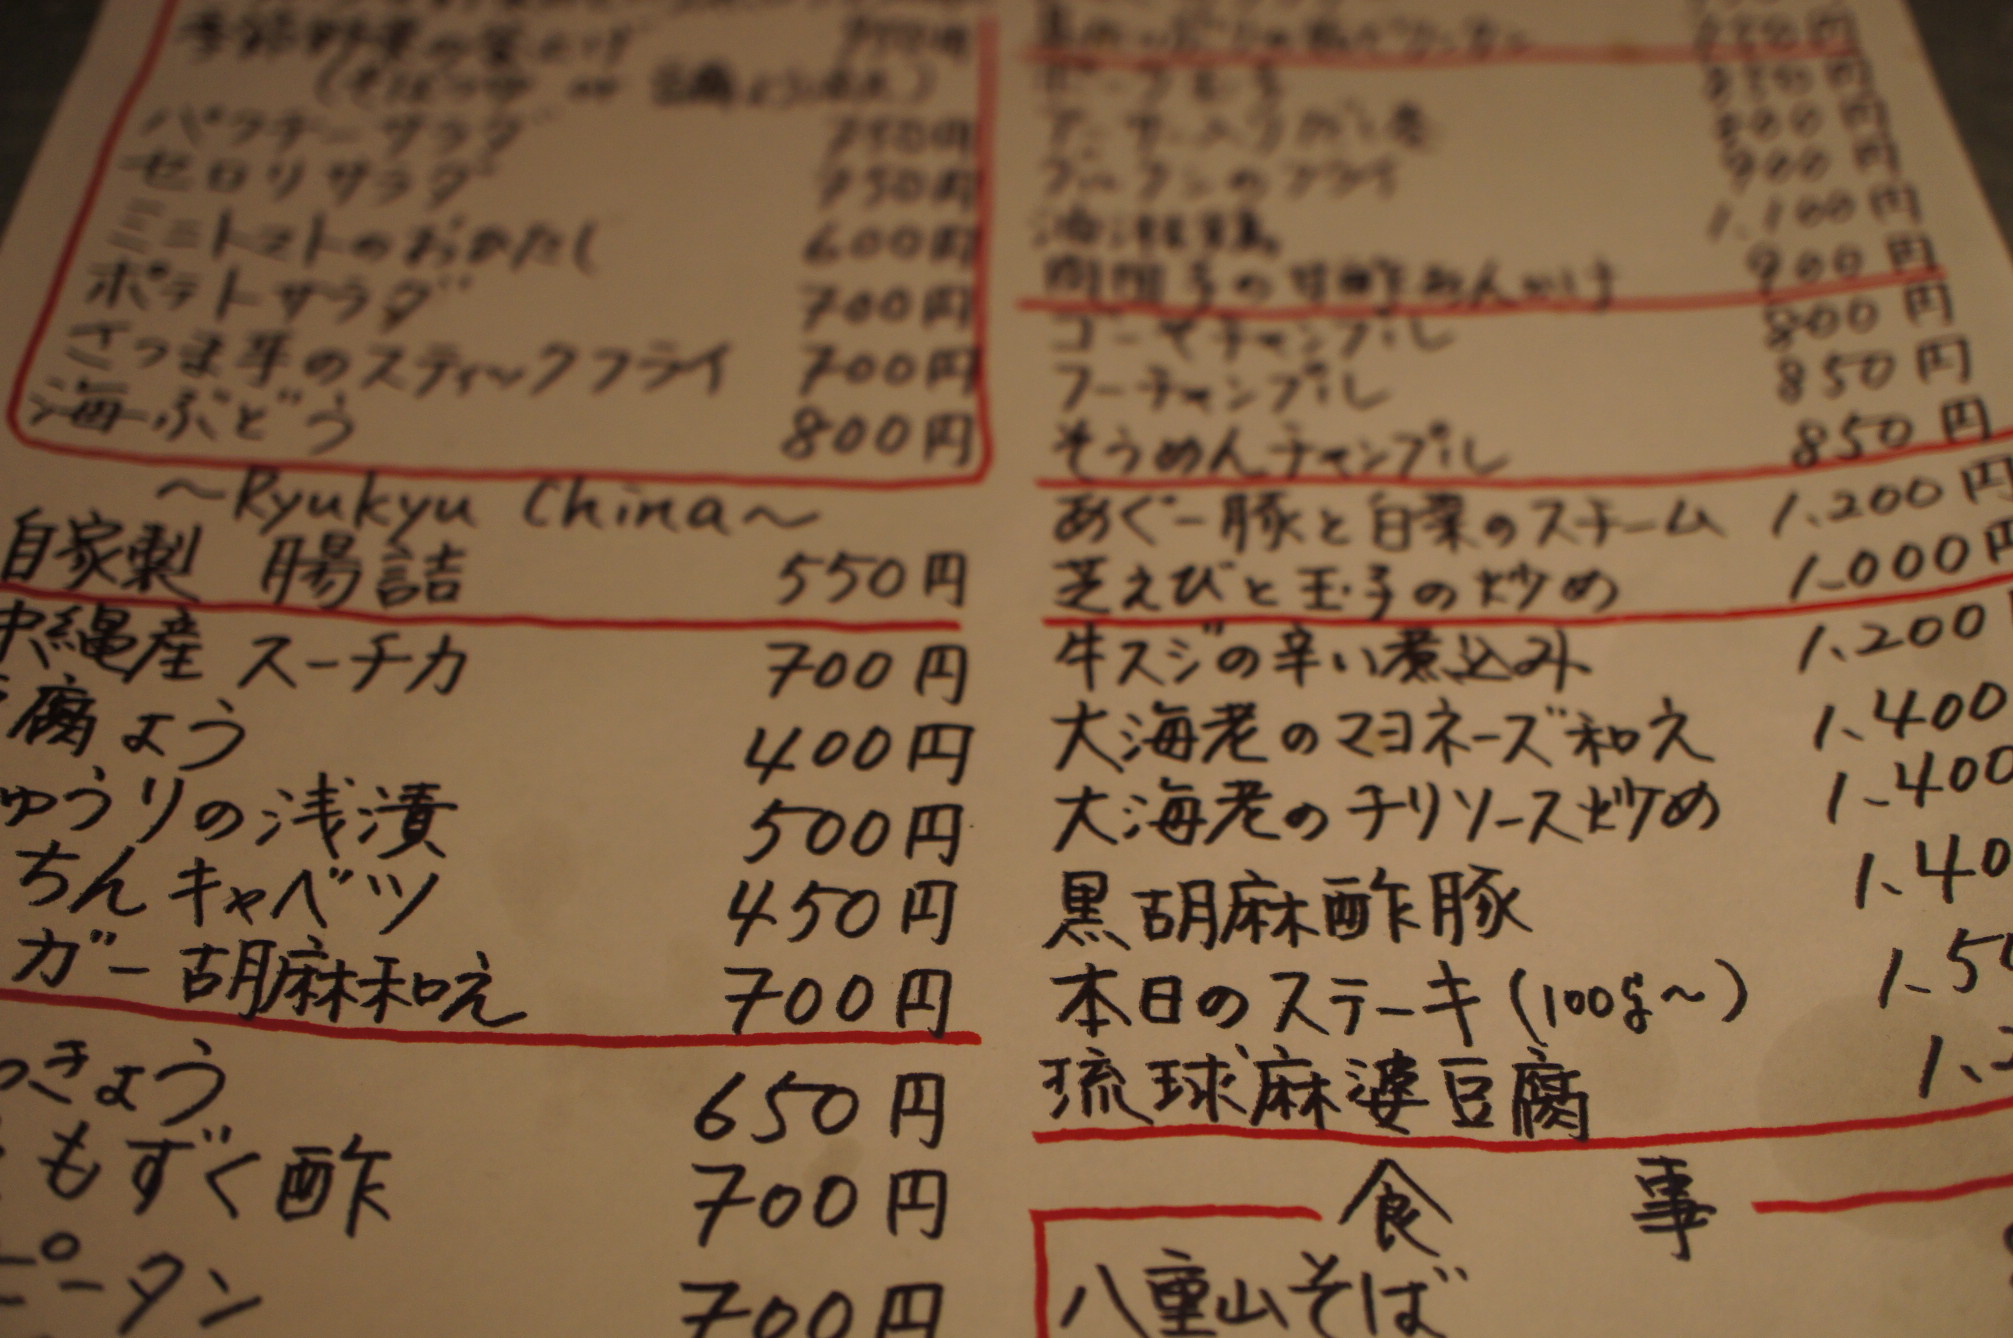 パクチーサラダ 750円
セロリサラダ 750円
ミニトマトのおひたし 600円
ポテトサラダ 700円
さつま芋のスティックフライ 700円
海ぶどう 800円
〜Ryukyu China〜
自家製 腸詰 550円
沖縄産 スーチカ 700円
腐よう 400円
ゅうりの浅漬 500円
ちんキャベツ 450円
ガー胡麻和え 700円
っきょう 650円
もずく酢 700円
ピータン 700円
850円
800円
グルクンのフライ 900円
1.100円
の甘酢あんかけ 900円
ゴーヤチャンプルー 800円
フーチャンプルー 850円
そうめんチャンプルー 850円
あぐー豚と白菜のスチーム 1.200円
芝えびと玉子の炒め 1.000円
牛スジの辛い煮込み 1.200
大海老のマヨネーズ和え 1.400
大海老のチリソース炒め 1.400
黒胡麻酢豚 1.40
本日のステーキ(100g〜) 1.50
琉球麻婆豆腐 1.
食 事
八重山そば